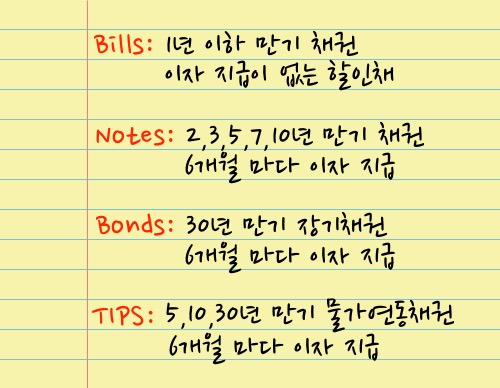 Bills: 1년 이하 만기 채권
이자 지급이 없는 할인채
Notes: 2,3,5,7,10년 만기 채권
6개월 마다 이자 지급
Bonds: 30년 만기 장기채권
6개월 마다 이자 지급
TIPS: 5,10,30년 만기 물가연동채권
6개월 마다 이자 지급